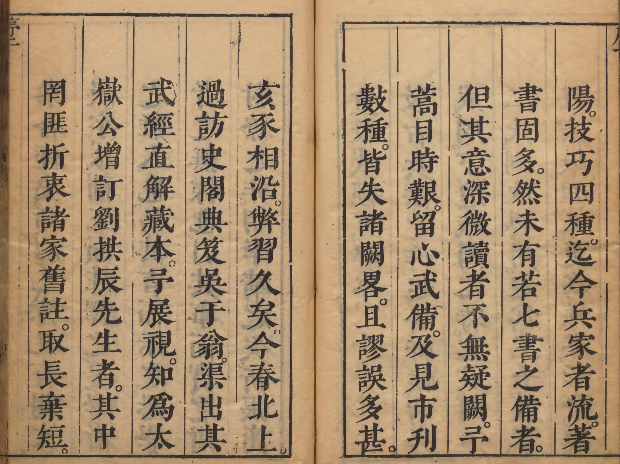 陽。技巧四種。迄今兵家者流。著
書固多。然未有若七書之備者。
但其意深微讀者不無疑闕。予
蒿目時艱。留心武備。及見市刊
數種。皆失諸闕畧。且謬誤多甚。
亥豕相沿。弊習久矣。今春北上。
過訪史閣典笈吳于翁。渠出其
武經直解藏本。予展視。知爲太
嶽公增訂劉拱辰先生者。其中
罔匪折衷諸家舊註。取長棄短。